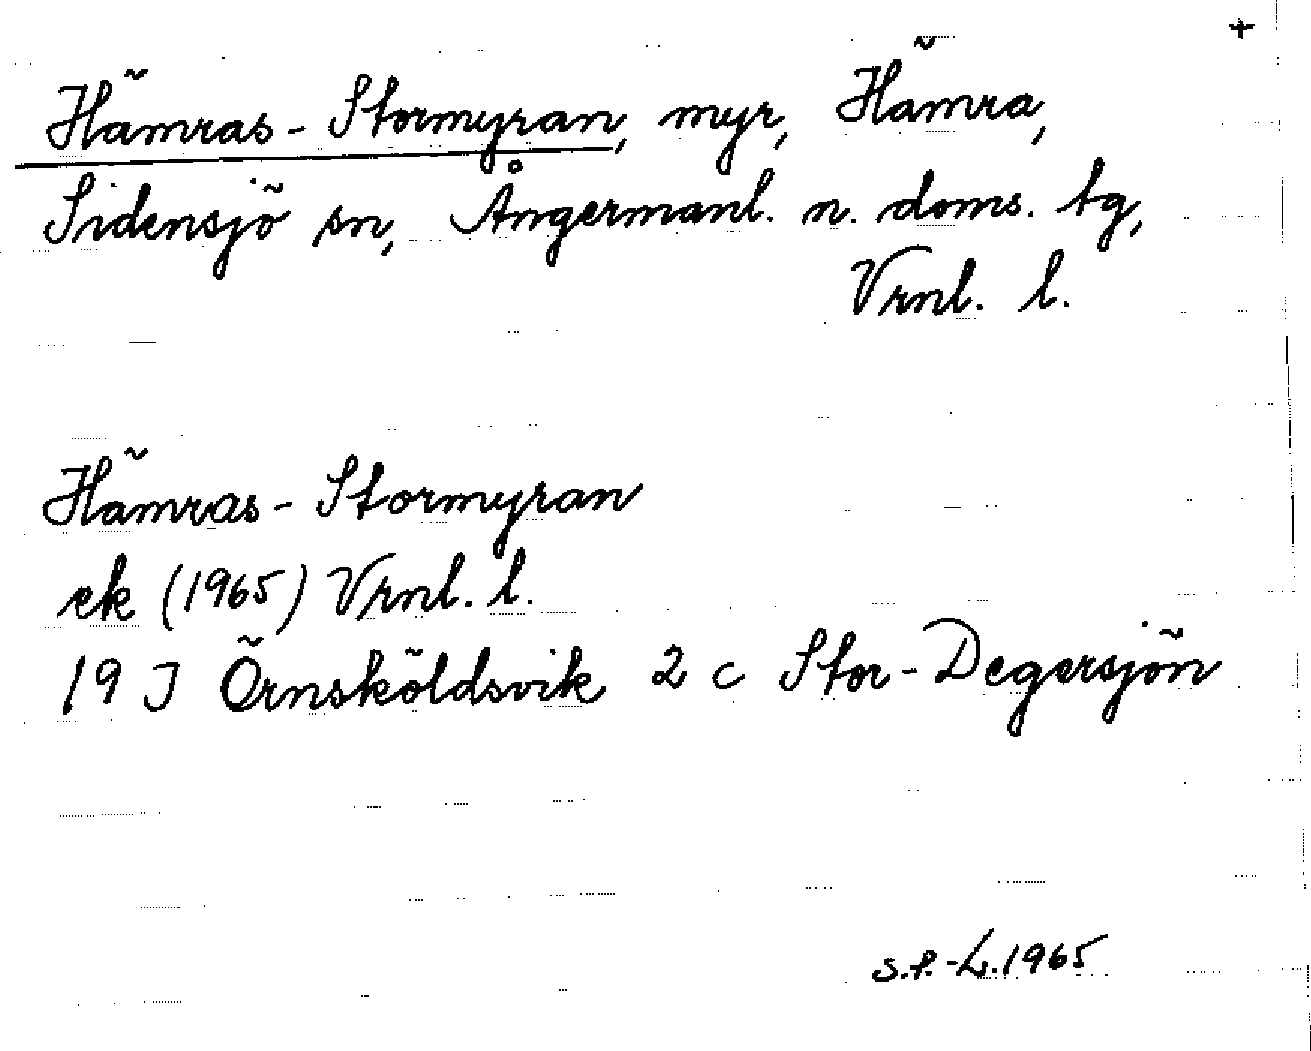 +
Hämras-Stormyran, myr, Hämra,
Sidensjö sn, Ångermanl. n. doms. tg,
Vrnl. l.
Hämras-Stormyran
ek (1965) Vrnl. l.
19 J Örnsköldsvik 2 c Stor-Degersjön
S.P.-L. 1965